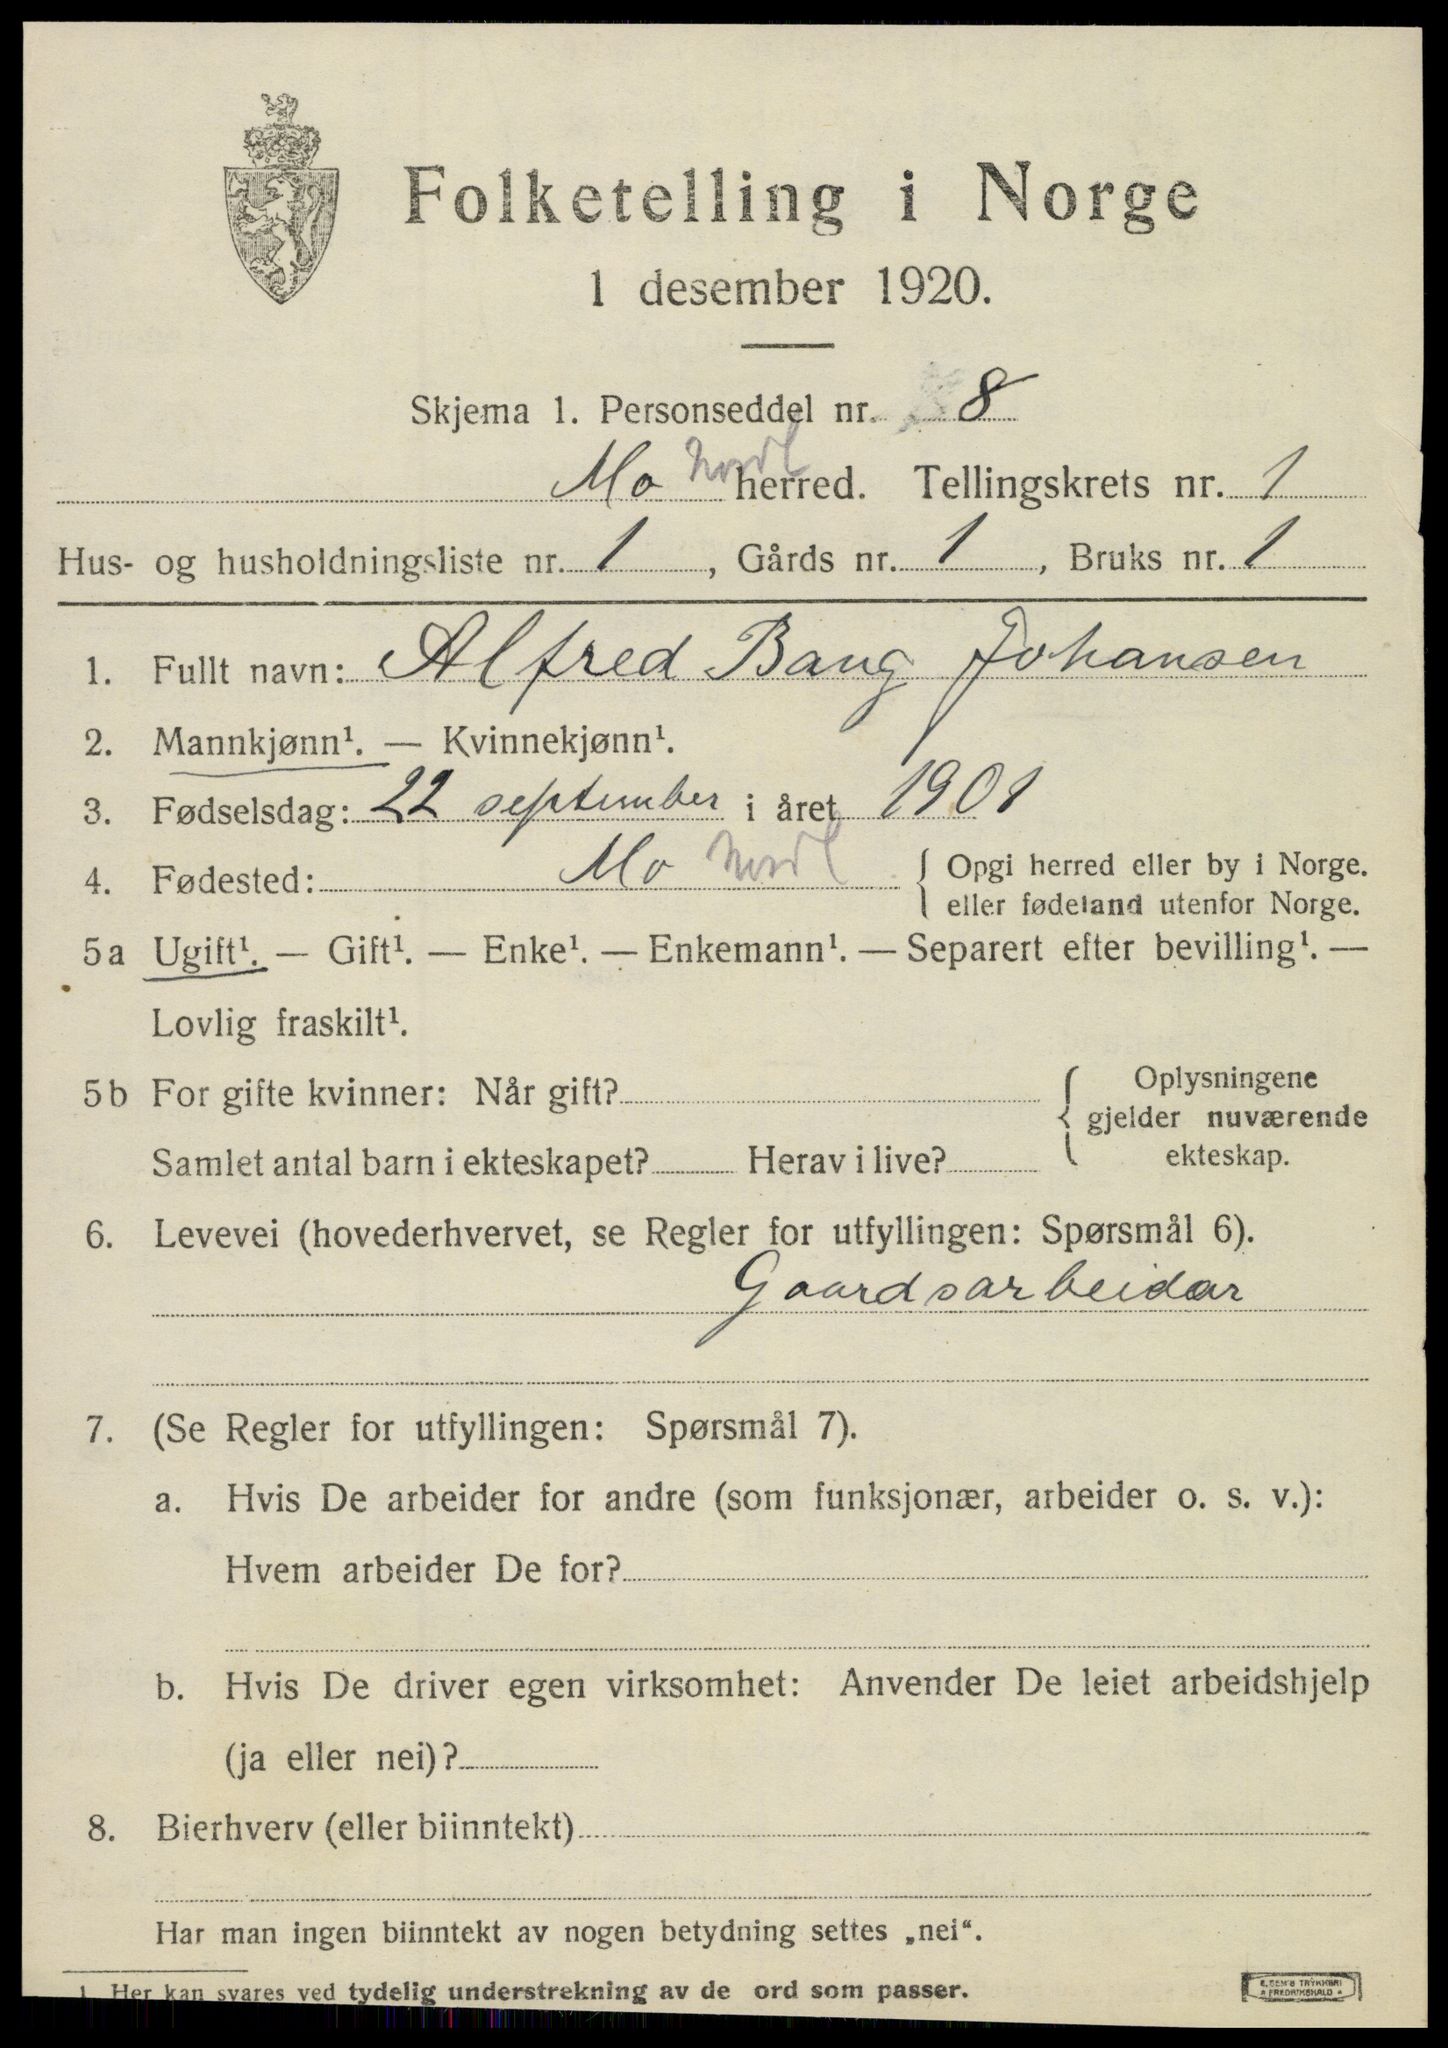 Folketelling i Norge
1 desember 1920.
Skjema 1. Personseddel nr. 8
Mo Nordl herred. Tellingskrets nr. 1
Hus- og husholdningsliste nr. 1, Gårds nr. 1, Bruks nr. 1
1. Fullt navn: Alfred Bang Johansen
2. Mannkjønn¹. — Kvinnekjønn¹.
3. Fødselsdag: 22 september i året 1901
4. Fødested: Mo Nordl { Opgi herred eller by i Norge.
eller fødeland utenfor Norge.
5a Ugift¹. — Gift¹. — Enke¹. — Enkemann¹. — Separert efter bevilling¹. —
Lovlig fraskilt¹.
5b For gifte kvinner: Når gift? { Oplysningene
gjelder nuværende
Samlet antal barn i ekteskapet? Herav i live? ekteskap.
6. Levevei (hovederhvervet, se Regler for utfyllingen: Spørsmål 6).
Gaardsarbeidar
7. (Se Regler for utfyllingen: Spørsmål 7).
a. Hvis De arbeider for andre (som funksjonær, arbeider o. s. v.):
Hvem arbeider De for?
b. Hvis De driver egen virksomhet: Anvender De leiet arbeidshjelp
(ja eller nei)?
8. Bierhverv (eller biinntekt)
Har man ingen biinntekt av nogen betydning settes „nei“.
1. Her kan svares ved tydelig understrekning av de ord som passer.
E. SEM'S TRYKKERI
FREDRIKSHALD